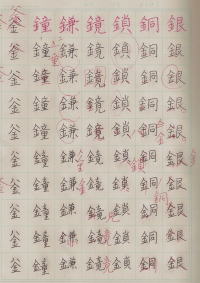 銀銀銀銀銀銀銀銀銀銀
銅銅銅銅銅銅銅銅銅銅
鎖鎖鎖鎖鎖鎖鎖鎖鎖鎖
鏡鏡鏡鏡鏡鏡鏡鏡鏡鏡
鎌鎌鎌鎌鎌鎌鎌鎌鎌鎌
鐘鐘鐘鐘鐘鐘鐘鐘鐘鐘
釜釜釜釜釜釜釜釜釜釜